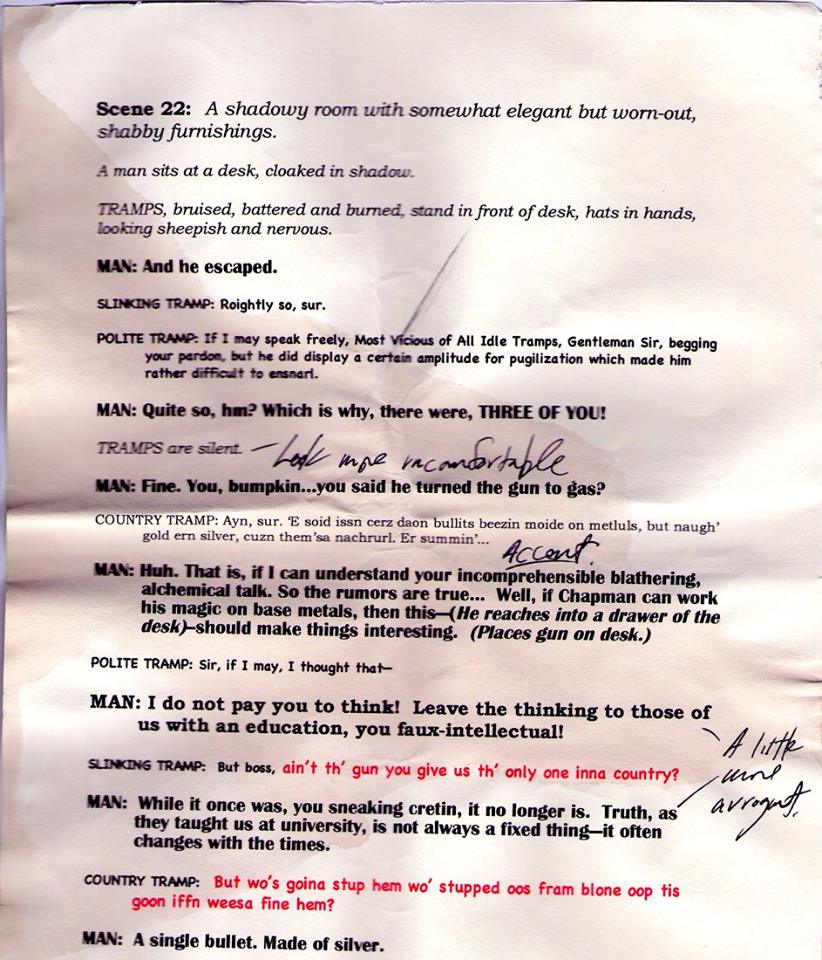 Scene 22: A shadowy room with somewhat elegant but worn-out,
shabby furnishings.
A man sits at a desk, cloaked in shadow.
TRAMPS, bruised, battered and burned, stand in front of desk, hats in hands,
looking sheepish and nervous.
MAN: And he escaped.
SLINKING TRAMP: Roightly so, sur.
POLITE TRAMP: If I may speak freely, Most Vicious of All Idle Tramps, Gentleman Sir, begging
your pardon, but he did display a certain amplitude for pugilization which made him
rather difficult to ensnarl.
MAN: Quite so, hm? Which is why, there were, THREE OF YOU!
TRAMPS are silent. – Look more uncomfortable
MAN: Fine. You, bumpkin...you said he turned the gun to gas?
COUNTRY TRAMP: Ayn, sur. 'E soid issn cerz daon bullits beezin moide on metluls, but naugh'
gold ern silver, cuzn them'sa nachrurl. Er summin'...
Accent.
MAN: Huh. That is, if I can understand your incomprehensible blathering,
alchemical talk. So the rumors are true... Well, if Chapman can work
his magic on base metals, then this—(He reaches into a drawer of the
desk)–should make things interesting. (Places gun on desk.)
POLITE TRAMP: Sir, if I may, I thought that—
MAN: I do not pay you to think! Leave the thinking to those of
us with an education, you faux-intellectual!
A little
more
arrogant.
SLINKING TRAMP: But boss, ain't th' gun you give us th' only one inna country?
MAN: While it once was, you sneaking cretin, it no longer is. Truth, as
they taught us at university, is not always a fixed thing—it often
changes with the times.
COUNTRY TRAMP: But wo's goina stup hem wo' stupped oos fram blone oop tis
goon iffn weesa fine hem?
MAN: A single bullet. Made of silver.